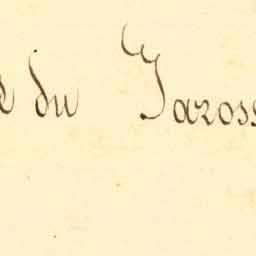 du Taross